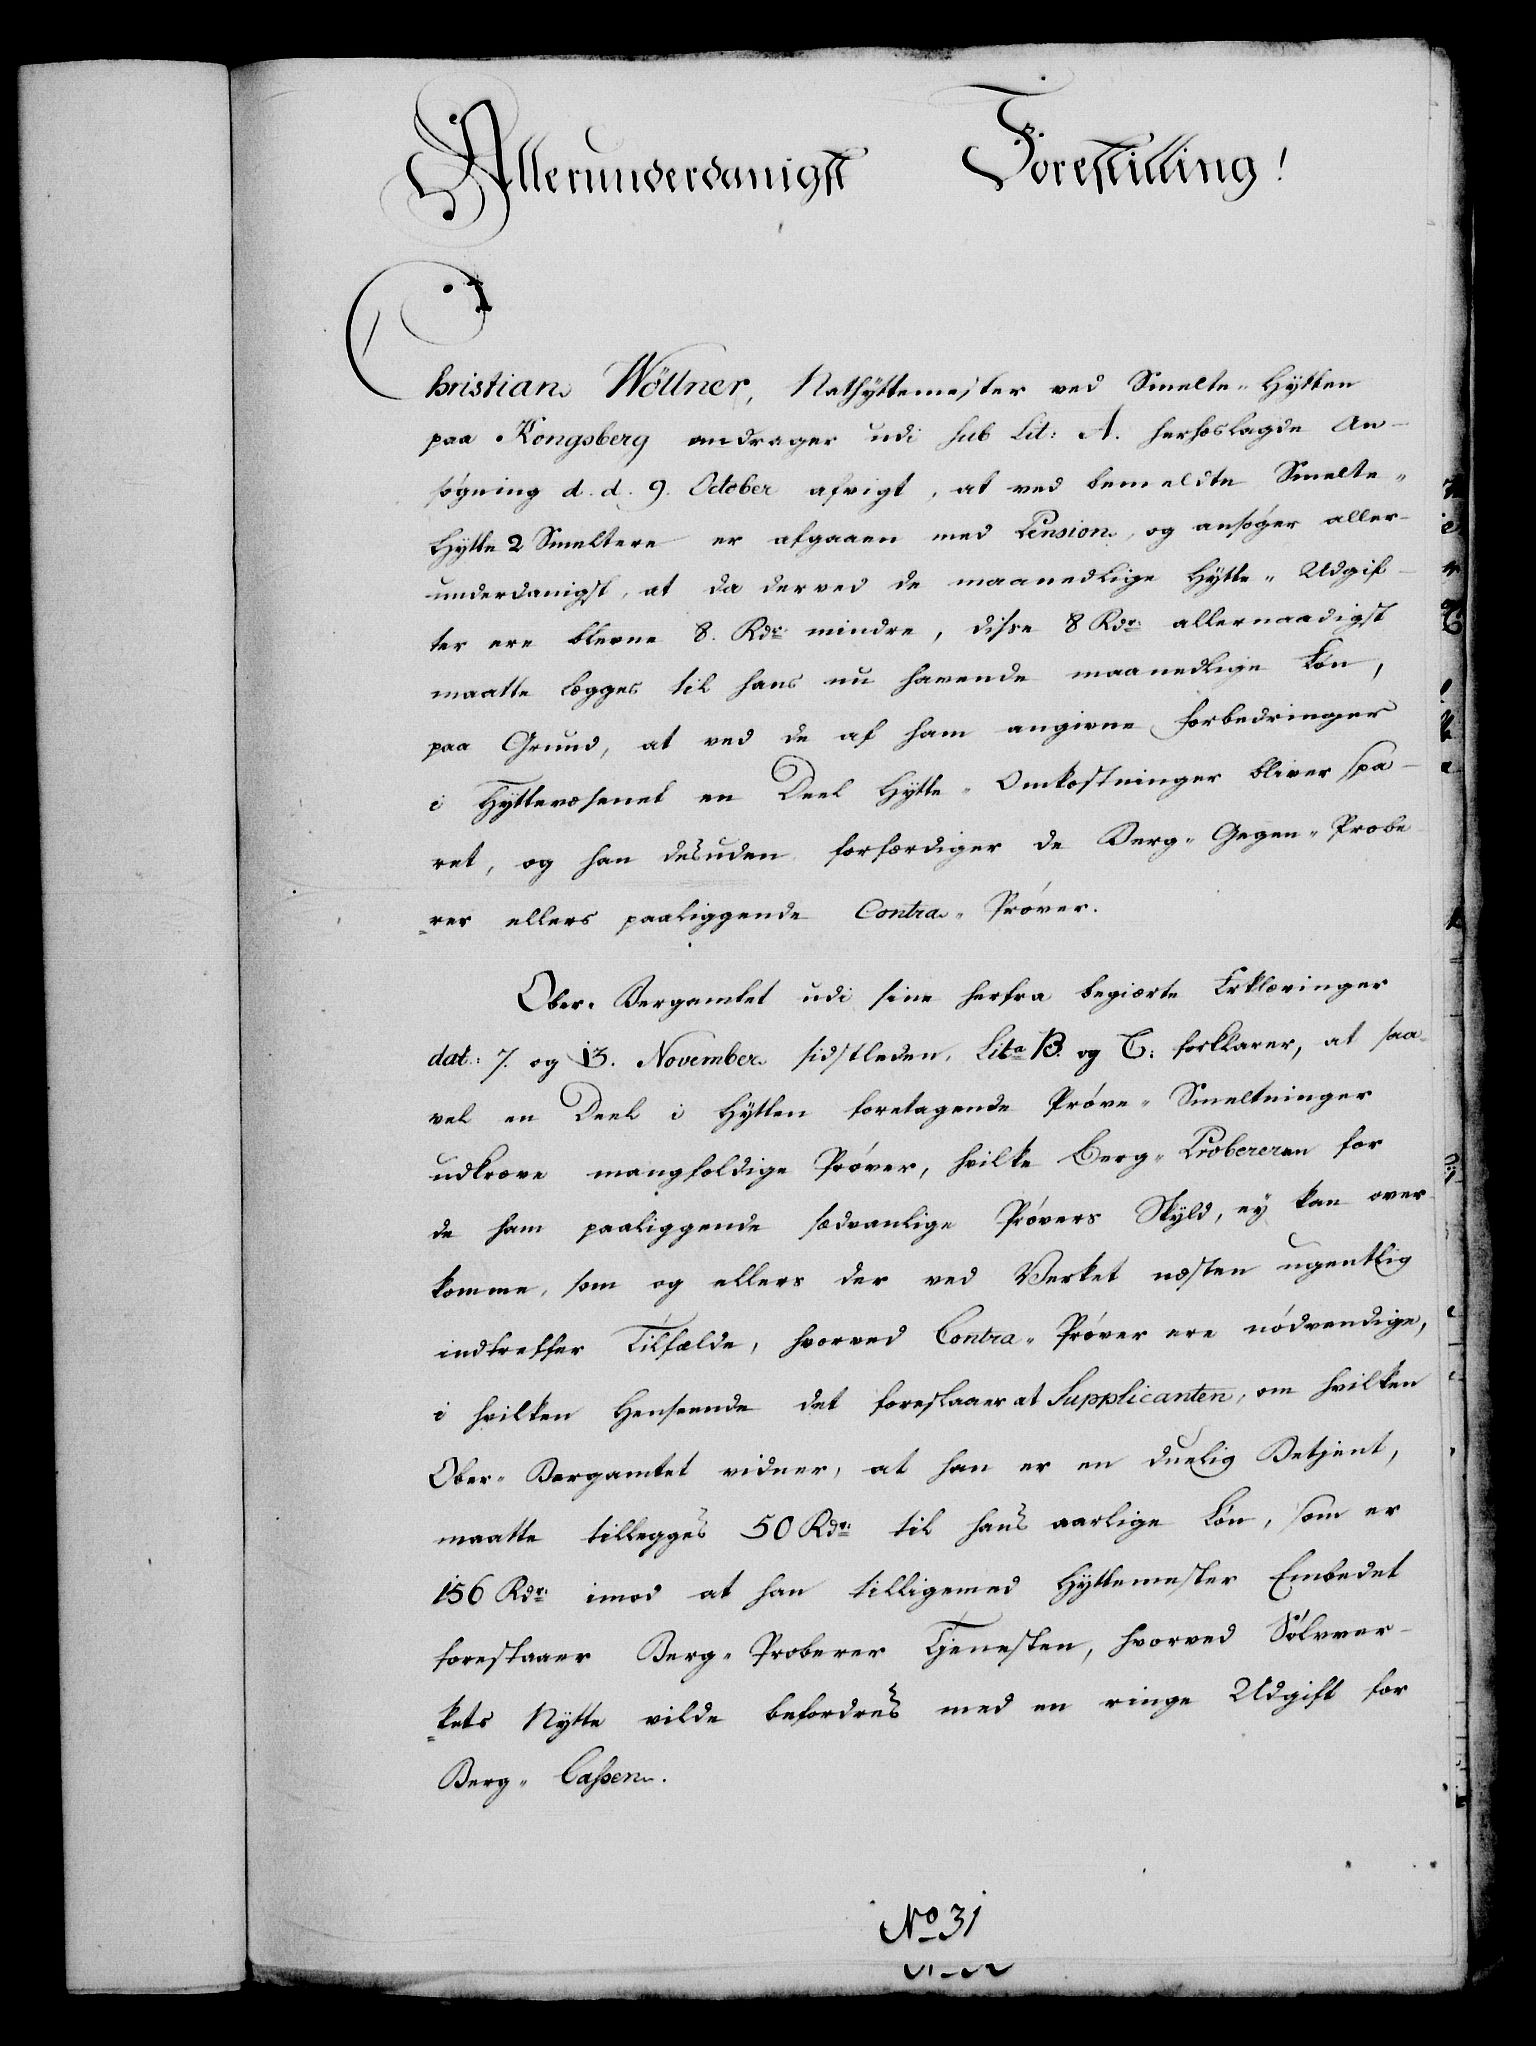 Allerunderdanigst Forestilling!
Christian Wöllner, Nathyttemester ved Smelte-Hytten
paa Kongsberg andrager udi sub Lit: A. herhoslagde An-
søgning d. d. 9. October afvigt, at ved bemeldte Smelte-
Hytte 2 Smeltere er afgaaen med Pension, og ansøger aller-
underdanigst, at da derved de maanedlige Hytte-Udgif-
ter ere blevne 8. Rdr mindre, disse 8 Rdr allernaadigst
maatte lægges til hans nu havende maanedlige Løn,
paa Grund, at ved de af ham angivne forbedringer
i Hyttevæsenet en Deel Hytte-Omkostninger bliver spa-
ret, og han desuden forfærdiger de Berg-Gegen-Probe-
rer ellers paaliggende Contra-Prøver.
Ober-Bergamtet udi sine herfra begiærte Erklæringer
dat: 7. og 13. November sidstleden, Lita B. og C: forklarer, at saa-
vel en Deel i Hytten foretagende Prøve-Smeltninger
udkræve mangfoldige Prøver, hvilke Berg-Probereren for
de ham paaliggende sædvanlige Prøvers Skyld, ey kan over-
komme, som og ellers der ved Verket næsten ugentlig
indtreffer Tilfælde, hvorved Contra-Prøver ere nödvendige,
i hvilken Henseende det foreslaaer at Supplicanten, om hvilken
Ober-Bergamtet vidner, at han er en duelig Betjent,
maatte tillegges 50 Rdr til hans aarlige Løn, som er
156 Rdr imod at han tilligemed Hyttemester Embedet
forestaaer Berg-Proberer Tjenesten, hvorved Sølvver-
kets Nytte vilde befordres med en ringe Udgift for
Berg-Cassen.
No 31